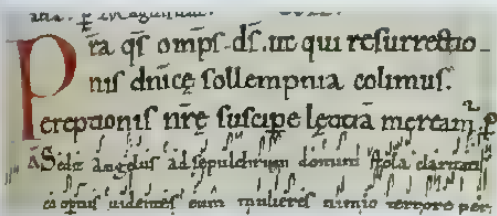 Pr̄a qs̄ omp̄s ds̄. ut qui resurrectio-
nis dn̄icę sollempnia colimus.
ereptionis nr̄ę suscipe lętitiā meream̄.
A Sedit angelus ad sepulchrum domini stola claritatis
coopertus uidentes eum mulieres nimio terrore per